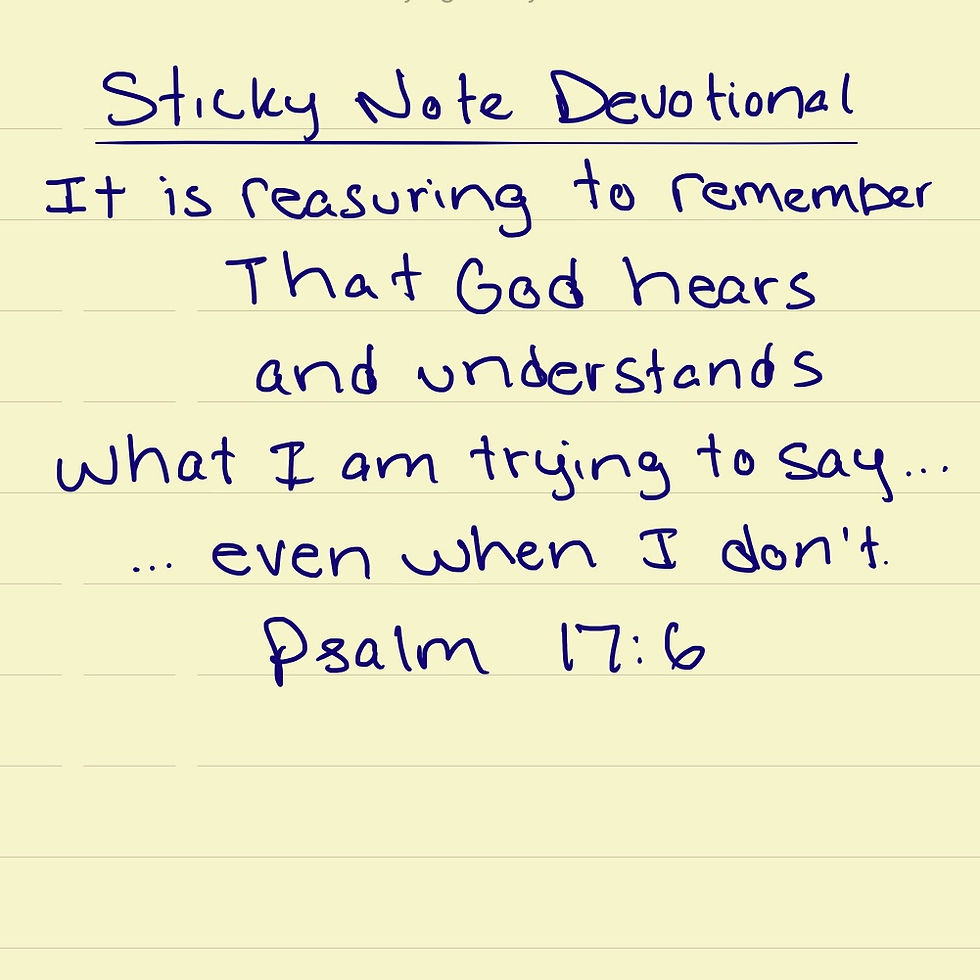 Sticky Note Devotional
It is reasuring to remember
That God hears
and understands
what I am trying to say...
... even when I don't.
Psalm 17:6